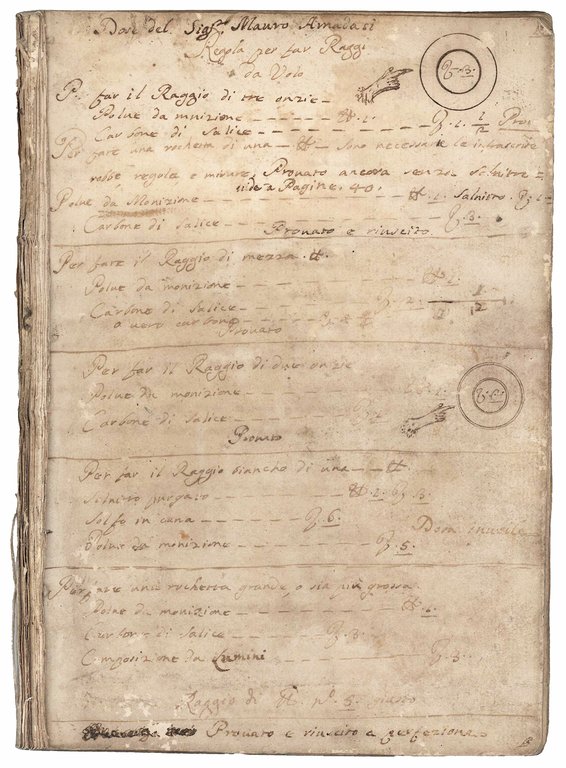 Dose del Sigr. Mauro Amadaci
Regola per far Raggi
da Volo
Per far il Raggio di tre onzie
Polue da monizione - - - - - ℔. 1.
Carbone di Salice - - - - - ℥. 1. 1/2
Per fare una rochetta di una ℔ sono necessarie le infrascrite
robbe regole e misure, Prouato ancora senza Salnitro
uide a Pagine. 40.
Polue da Monizione - - - - - ℔. 1. Salnitro. ℥. 1
Carbone di Salice - - - - - ℥. 3.
Prouato e riuscito.
Per fare il Raggio di mezza. ℔.
Polue da monizione - - - - - ℔. 1.
Carbone di Salice - - - - - ℥. 2. 1/2
o vero carbone
Prouato
Per far il Raggio di due onzie
Polue da monizione
Carbone di Salice
Prouato
Per far il Raggio biancho di una - ℔
Salnitro purgato - - - - - ℔. 1.
Solfo in cana - - - - - ℥. 6.
Polue da monizione - - - - - ℥. 5.
Per fare una rochetta grande, o sia più grossa
Polue da monizione - - - - - ℔.
Carbone di Salice - - - - - ℥. 3.
Composizione da Lumini - - - - - ℥. 3.
Raggio di ℔. nº. 3. giusto
Prouato e riuscito a perfezione